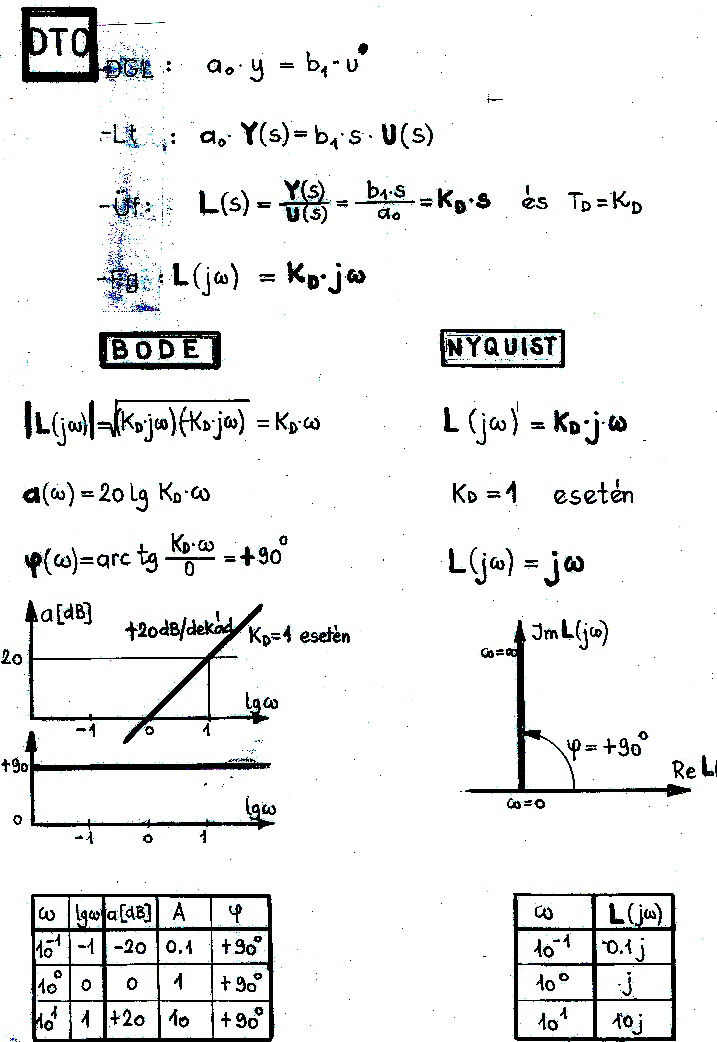 DT0
-DGL : a₀·y = b₁·u•
-Lt : a₀·Y(s) = b₁·s·U(s)
-Üf: L(s) = Y(s)/U(s) = b₁·s/a₀ = K_D·s és T_D=K_D
-Fg : L(jω) = K_D·jω
BODE
|L(jω)|=√(K_D·jω)(-K_D·jω) = K_D·ω
a(ω) = 20 lg K_D·ω
φ(ω)=arc tg K_D·ω/0 = +90°
a[dB]
+20dB/dekád
K_D=1 esetén
20
lgω
-1 0 1
+90
lgω
0
-1 0 1
ω lgω a[dB] A φ
10⁻¹ -1 -20 0.1 +90°
10⁰ 0 0 1 +90°
10¹ 1 +20 10 +90°
NYQUIST
L(jω) = K_D·j·ω
K_D = 1 esetén
L(jω) = jω
Jm L(jω)
ω=∞
φ=+90°
Re L(
ω=0
ω L(jω)
10⁻¹ 0.1j
10⁰ j
10¹ 10j